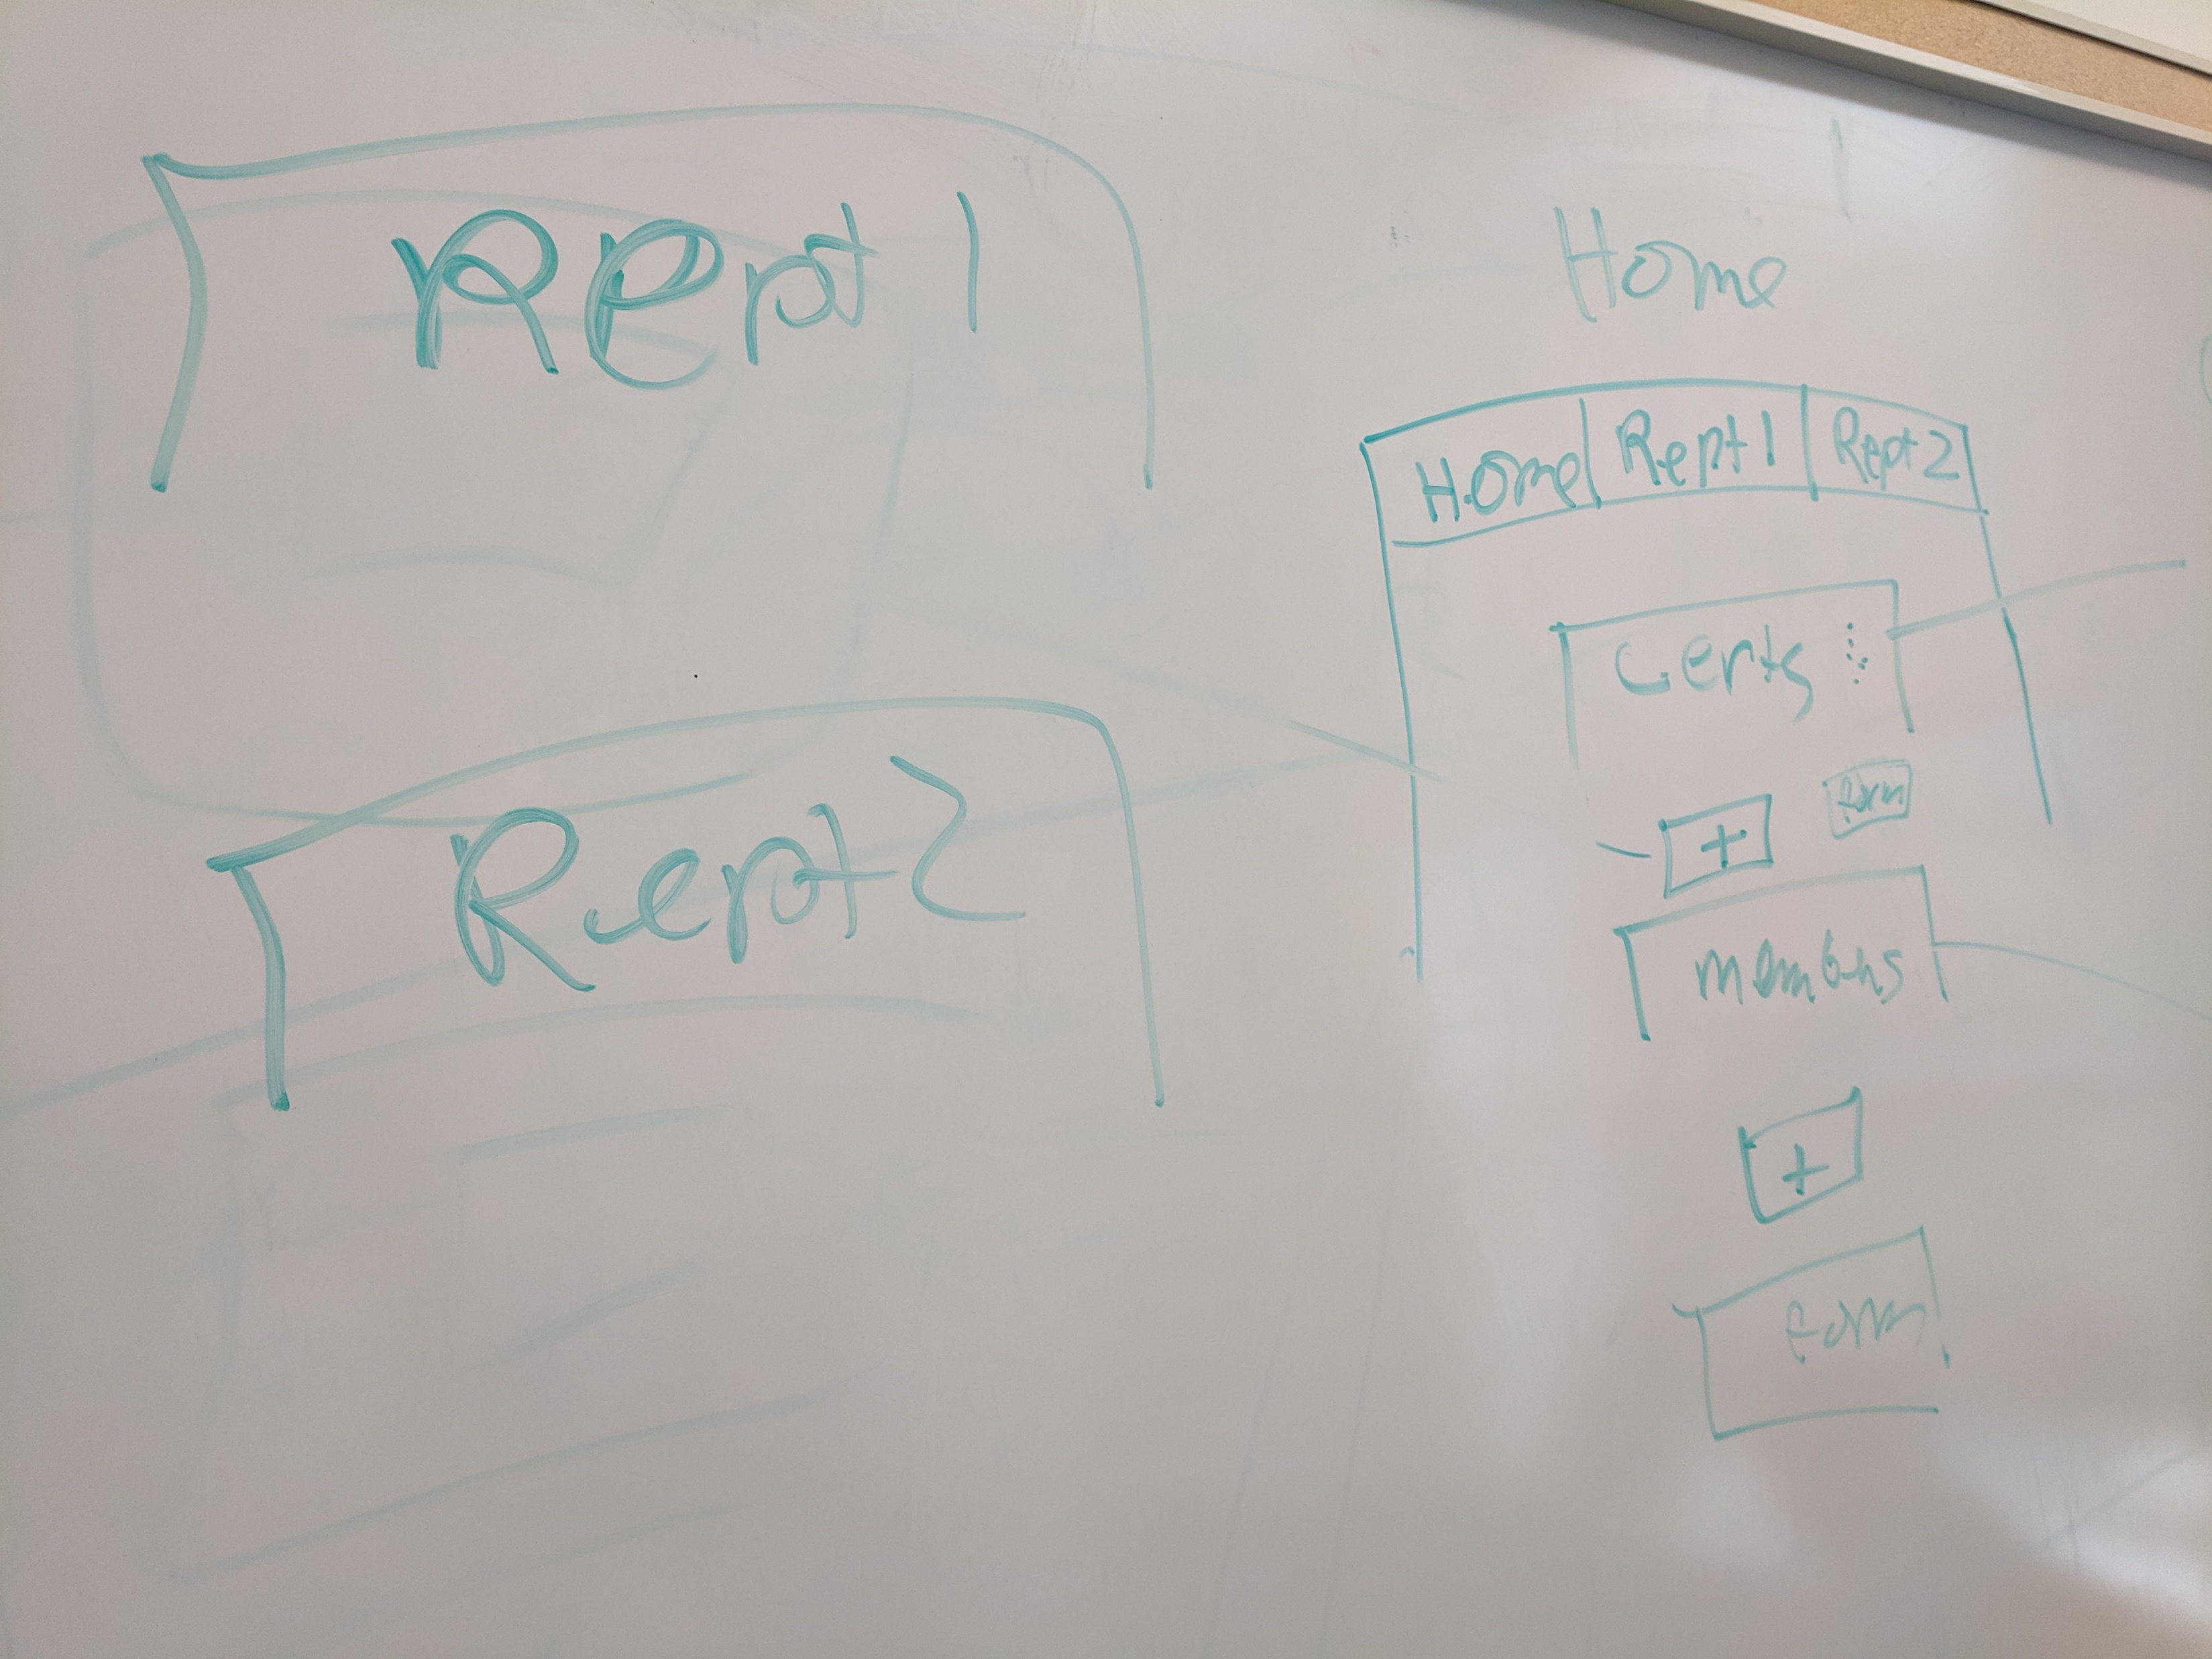 Rept 1
Rept 2
Home
Home Rept 1 Rept 2
Certs
+ form
members
+
form